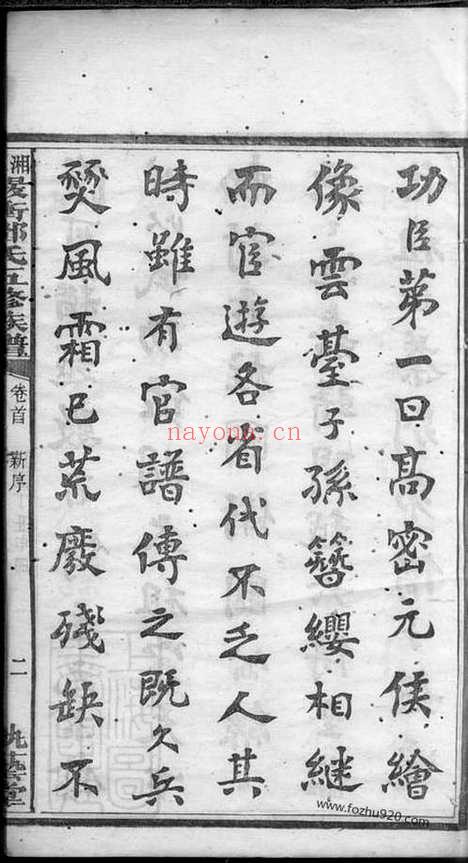 功臣第一曰高密元侯繪
像雲臺子孫簪纓相継
而官遊各省代不乏人其
時雖有官譜傳之既久兵
燹風霜已荒廢殘缺不
湘 氏五修族譜
卷首
新序
二
nayona.cn
www.fozhu920.com